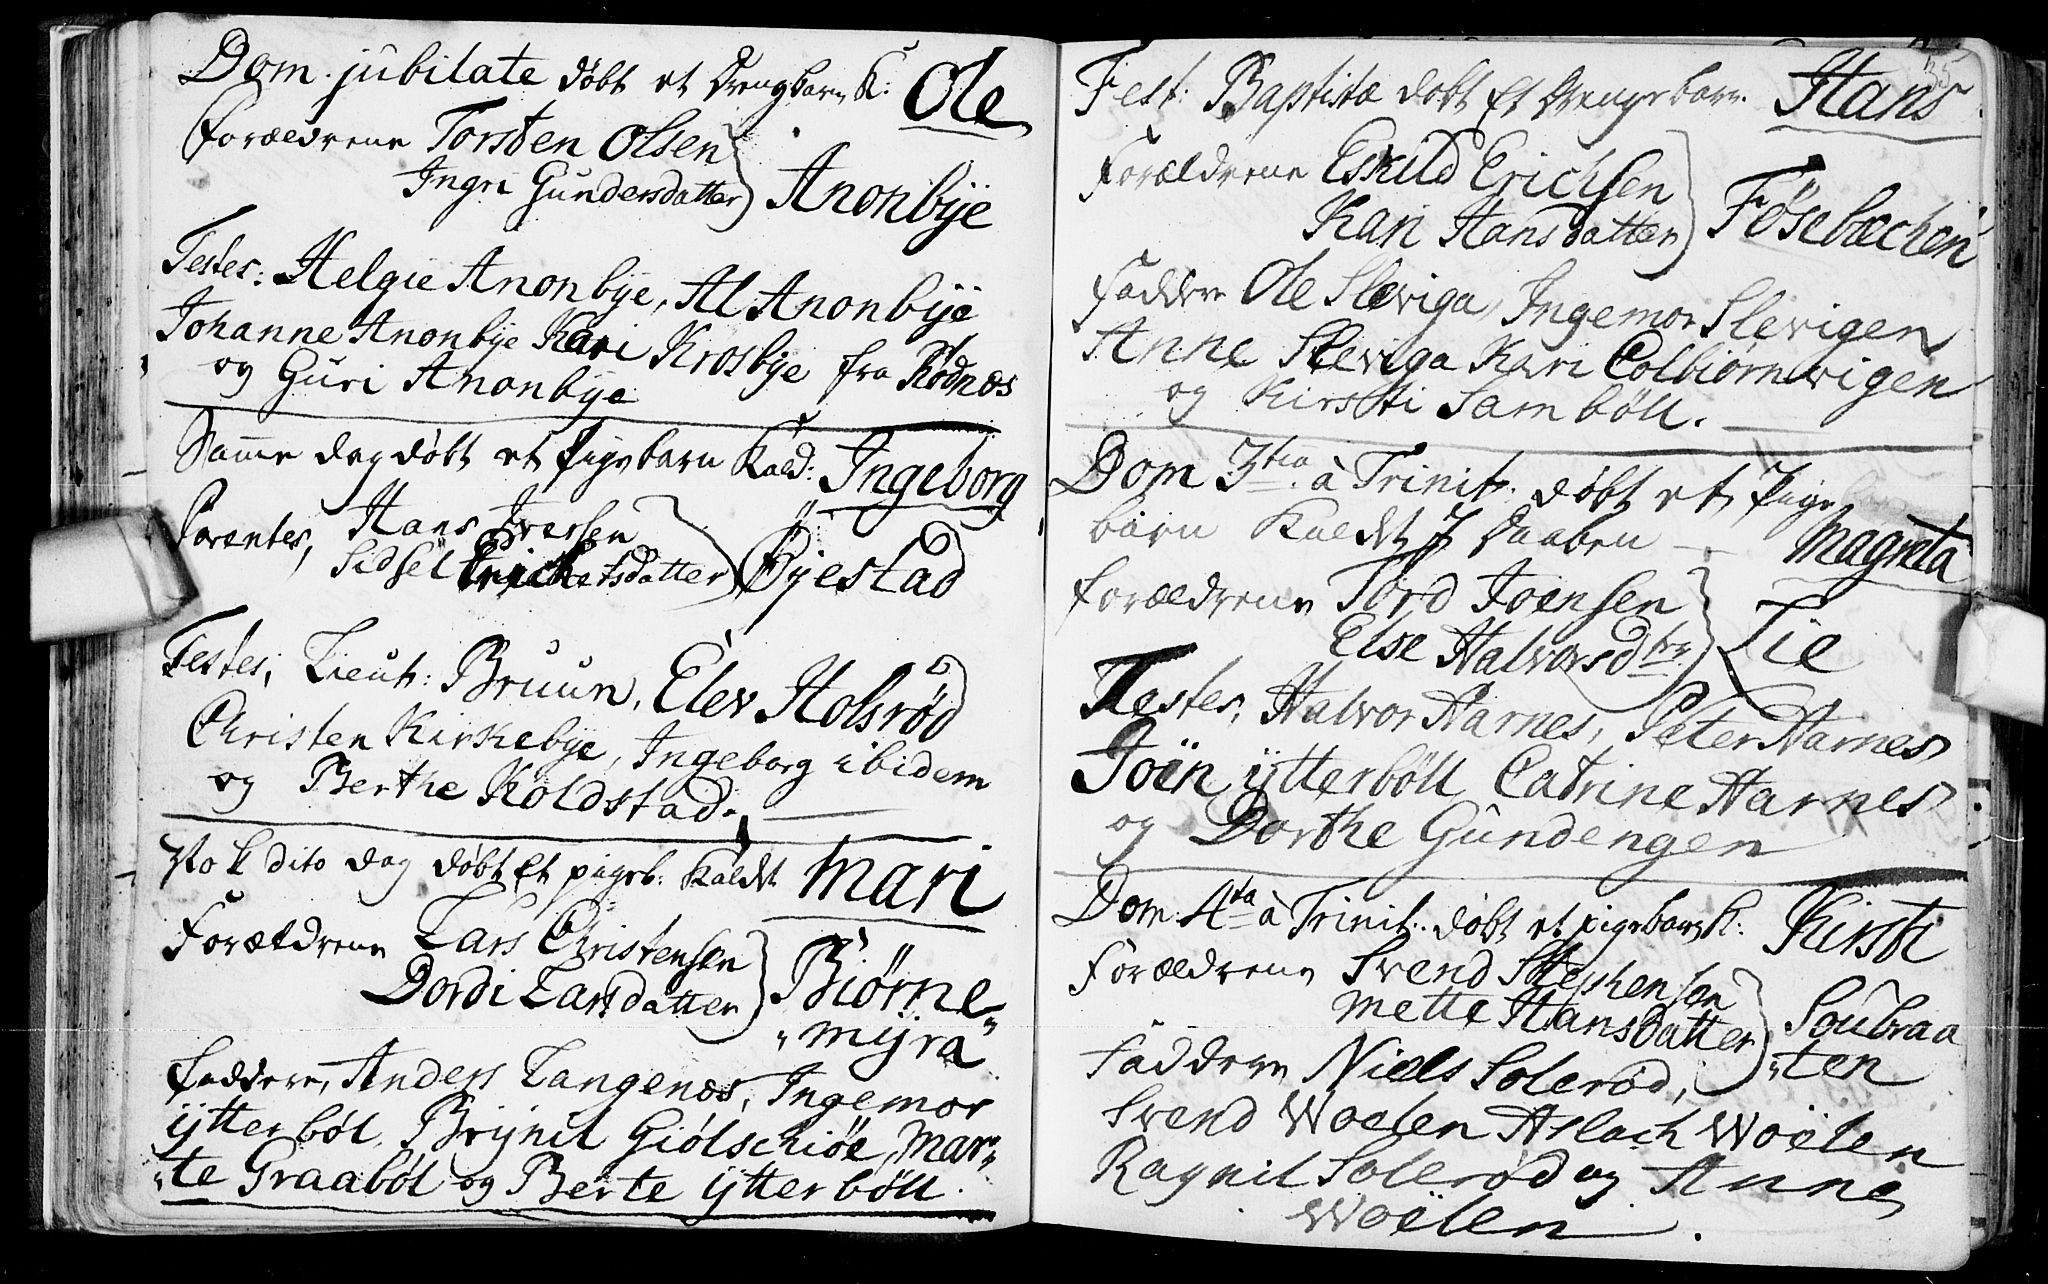 Dom. jubilate døbt et Drengbarn K: Ole
Forældrene Torsten Olsen
Ingri Gundersdatter Anonbÿe
Testes: Helgie Anonbye, Al Anonbÿe
Johanne Anonbye Kari Krosbye fra Rødnæs
og Guri Anonbye
Samme dag døbt et Pigebarn Kald: Ingeborg
Parentes, Hans Iversen
Sidsel datter Bÿestad
Testes, Lieut: Bruun, Elev Holsrød
Christen Kirkebye, Ingeborg ibidem
og Berthe Koldstad.
Nok dito dag døbt et pigeb: Kaldt Mari
Forældrene Lars Christensen
Dordi Larsdatter Biørne„
„mÿra
Faddere, Anders Langenæs, Ingemor
ÿtterbøl, Brÿnil Giølschiøe, Mar„
„te Graabøl og Berte ÿtterböll.
35
Fest: Baptistæ døbt Et Drengebarn. Hans
Forældrene Eskild Erichsen
Kari Hansdatter Fösebæchen
Faddere Ole Sleviga, Ingemor Slevigen
Anne Sleviga Kari Colbiørnvigen
og Kirsti Samböll.
Dom 3tia à Trinit. døbt et Pige
barn Kaldt I Daaben Magreta
Forældrene Tord Joensen
Else Halvorsdtr Lie
Testes, Halvor Harnes, Peter Harnes
Joën ÿtterböll Catrine Harnes
og Dorthe Gundengen
Dom. 4ta à Trinit: døbt et pigebarn K: Kirsti
Forældrene Svend Stephensen
Mette Hansdatter Soubraa
„ten
Faddere Niels Solerød,
Svend Woelen Aslach Woëlen
Ragnil Solerød og Anne
Woëlen.